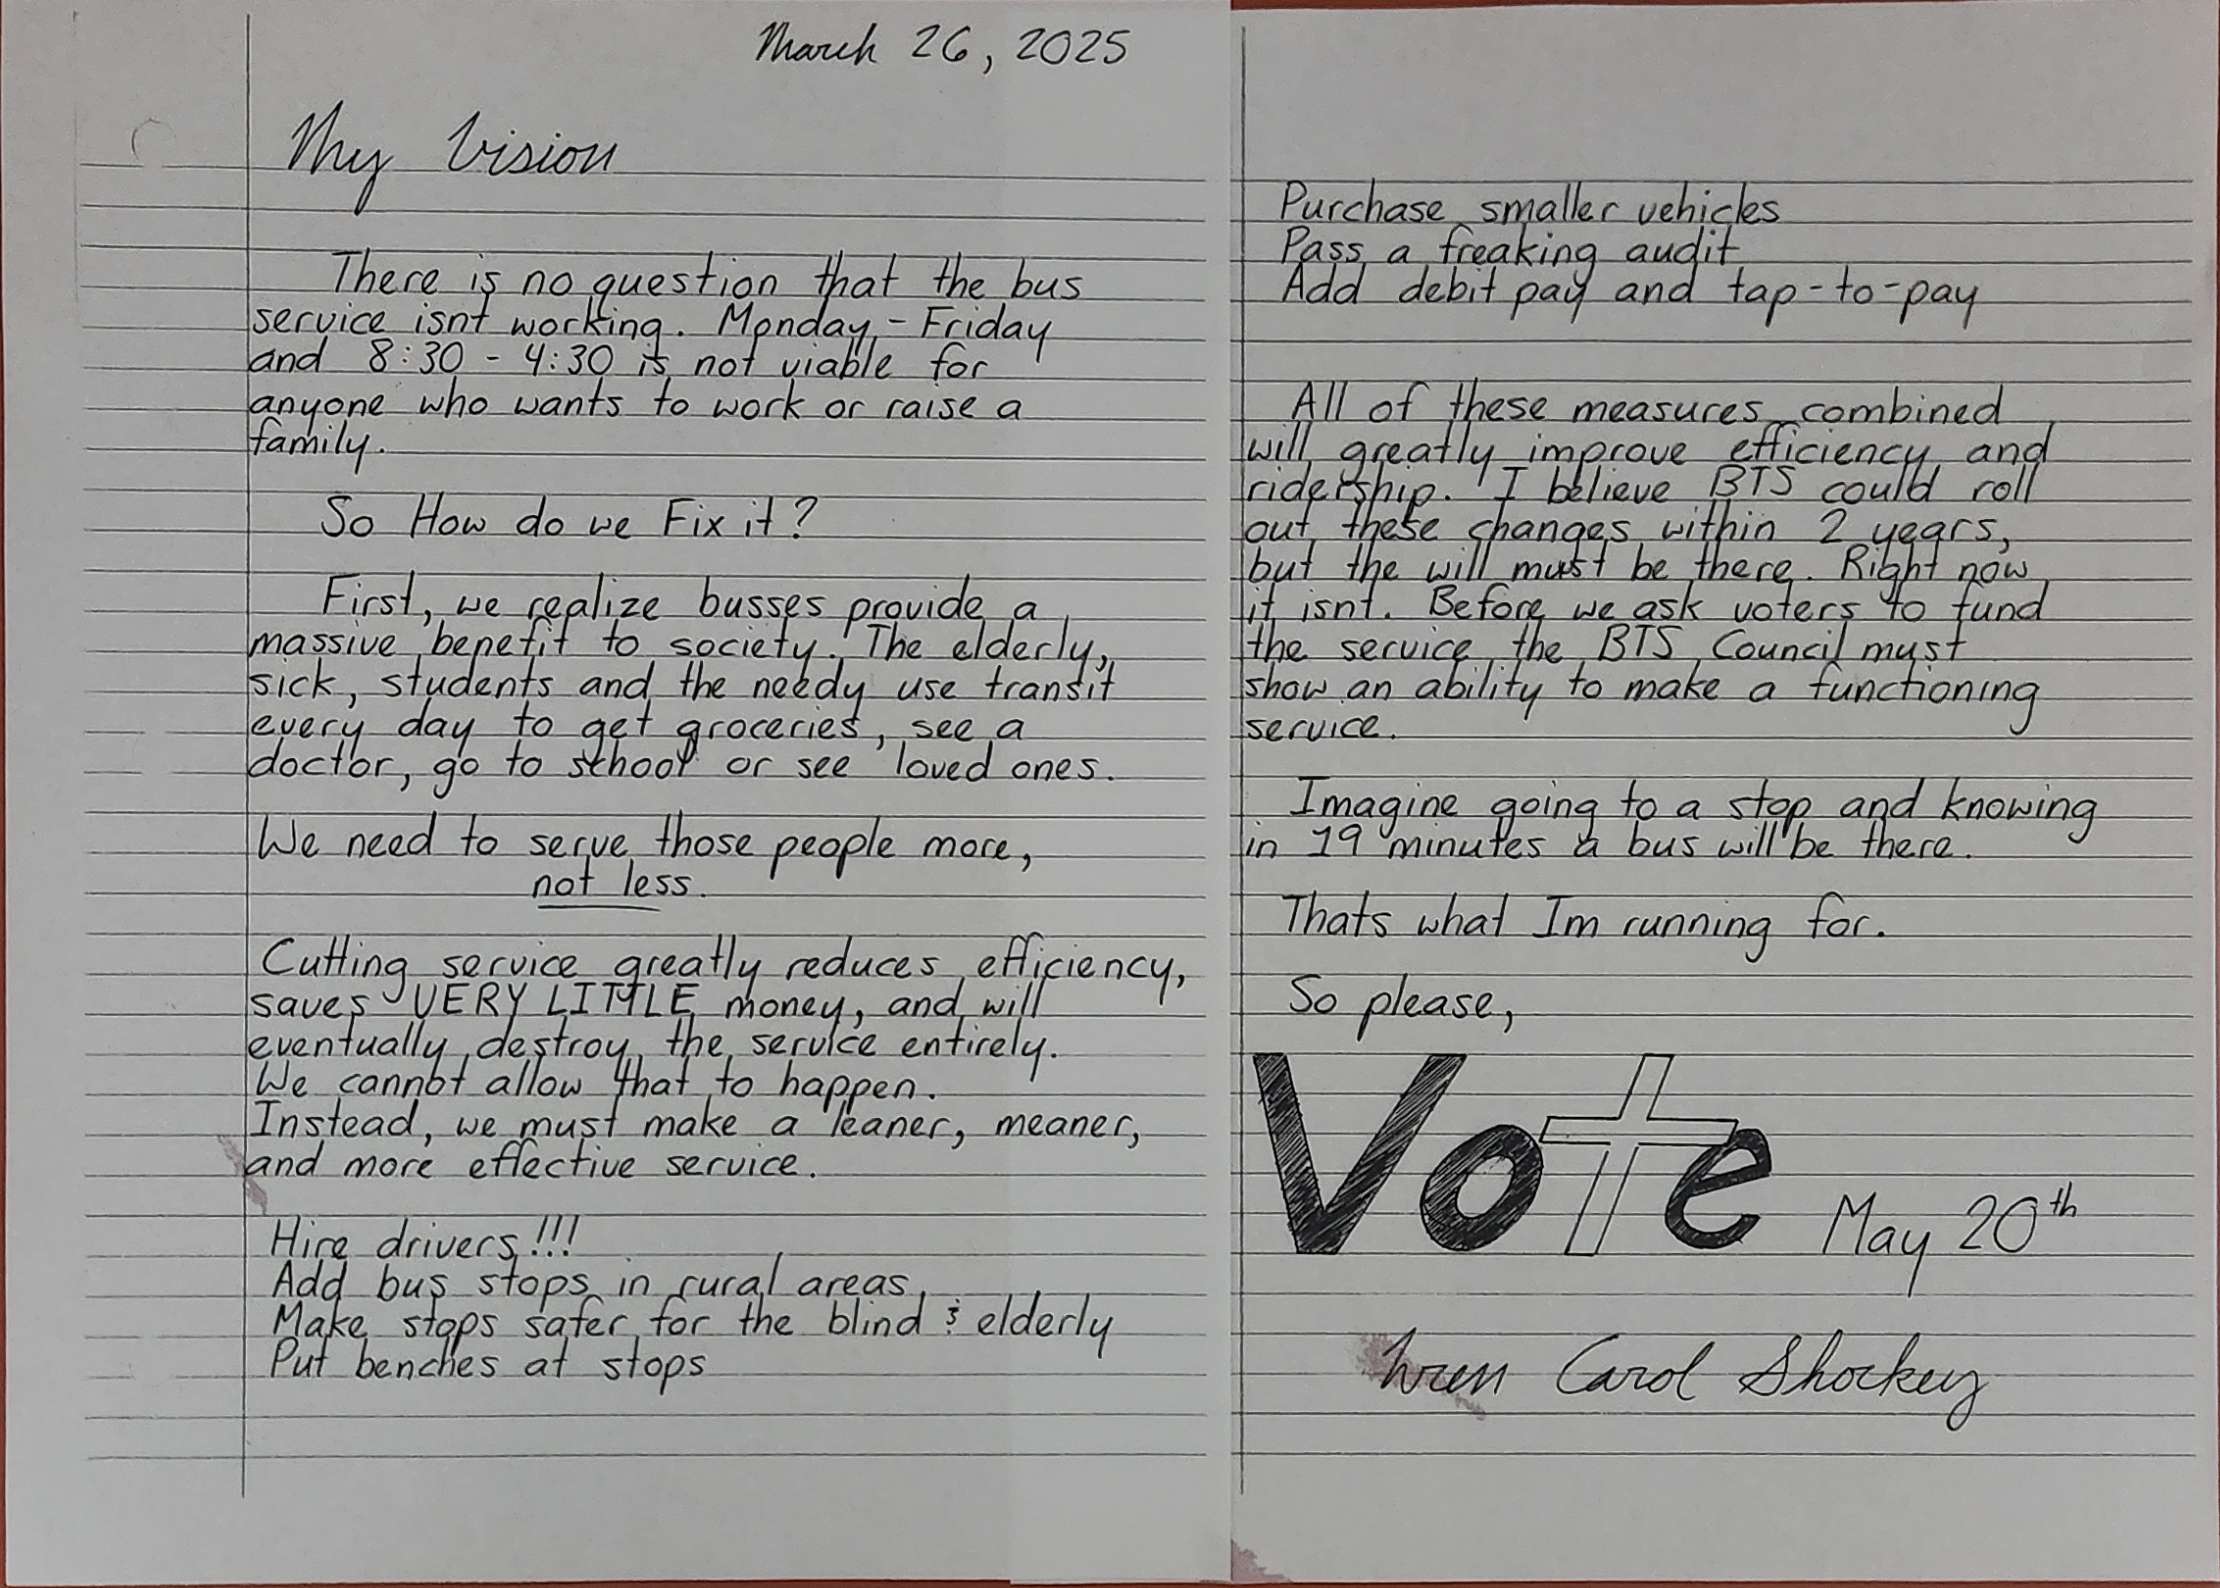 March 26, 2025
My Vision
There is no question that the bus
service isnt working. Monday-Friday
and 8:30 - 4:30 is not viable for
anyone who wants to work or raise a
family.
So How do we Fix it?
First, we realize busses provide a
massive benefit to society. The elderly,
sick, students and the needy use transit
every day to get groceries, see a
doctor, go to school or see loved ones.
We need to serve those people more,
not less.
Cutting service greatly reduces efficiency,
saves VERY LITTLE money, and will
eventually destroy the service entirely.
We cannot allow that to happen.
Instead, we must make a leaner, meaner,
and more effective service.
Hire drivers!!!
Add bus stops in rural areas
Make stops safer for the blind & elderly
Put benches at stops
Purchase smaller vehicles
Pass a freaking audit
Add debit pay and tap-to-pay
All of these measures combined
will greatly improve efficiency and
ridership. I believe BTS could roll
out these changes within 2 years,
but the will must be there. Right now
it isnt. Before we ask voters to fund
the service the BTS Council must
show an ability to make a functioning
service.
Imagine going to a stop and knowing
in 19 minutes a bus will be there.
Thats what Im running for.
So please,
Vote May 20th
Wren Carol Shockey